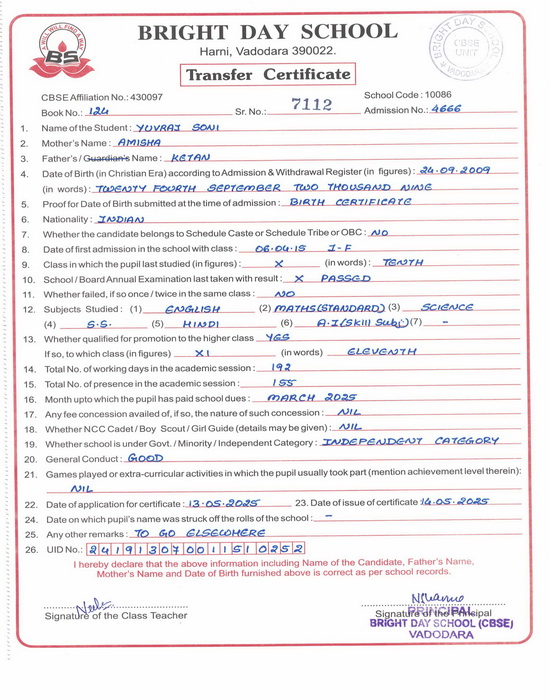 A WILL WILL FIND A WAY
BS
BRIGHT DAY SCHOOL
Harni, Vadodara 390022.
Transfer Certificate
BRIGHT DAY SCHOOL
CBSE
UNIT
VADODARA
CBSE Affiliation No.: 430097 School Code : 10086
Book No.: 124 Sr. No.: 7112 Admission No.: 4666
1. Name of the Student : YUVRAJ SONI
2. Mother's Name : AMISHA
3. Father's / Guardian's Name : KETAN
4. Date of Birth (in Christian Era) according to Admission & Withdrawal Register (in figures) : 24.09.2009
(in words) : TWENTY FOURTH SEPTEMBER TWO THOUSAND NINE
5. Proof for Date of Birth submitted at the time of admission : BIRTH CERTIFICATE
6. Nationality : INDIAN
7. Whether the candidate belongs to Schedule Caste or Schedule Tribe or OBC : NO
8. Date of first admission in the school with class : 06.04.15 I-F
9. Class in which the pupil last studied (in figures) : X (in words) : TENTH
10. School / Board Annual Examination last taken with result : X PASSED
11. Whether failed, if so once / twice in the same class : NO
12. Subjects Studied : (1) ENGLISH (2) MATHS(STANDARD) (3) SCIENCE
(4) S.S. (5) HINDI (6) A.I(Skill Subj.) (7) -
13. Whether qualified for promotion to the higher class YES
If so, to which class (in figures) XI (in words) ELEVENTH
14. Total No. of working days in the academic session : 192
15. Total No. of presence in the academic session : 155
16. Month upto which the pupil has paid school dues : MARCH 2025
17. Any fee concession availed of, if so, the nature of such concession : NIL
18. Whether NCC Cadet / Boy Scout / Girl Guide (details may be given) : NIL
19. Whether school is under Govt. / Minority / Independent Category : INDEPENDENT CATEGORY
20. General Conduct : GOOD
21. Games played or extra-curricular activities in which the pupil usually took part (mention achievement level therein):
NIL
22. Date of application for certificate : 13.05.2025 23. Date of issue of certificate 14.05.2025
24. Date on which pupil's name was struck off the rolls of the school : -
25. Any other remarks : TO GO ELSEWHERE
26. UID No.: 241913070011510252
I hereby declare that the above information including Name of the Candidate, Father's Name,
Mother's Name and Date of Birth furnished above is correct as per school records.
Signature of the Class Teacher Signature of the Principal
PRINCIPAL
BRIGHT DAY SCHOOL (CBSE)
VADODARA